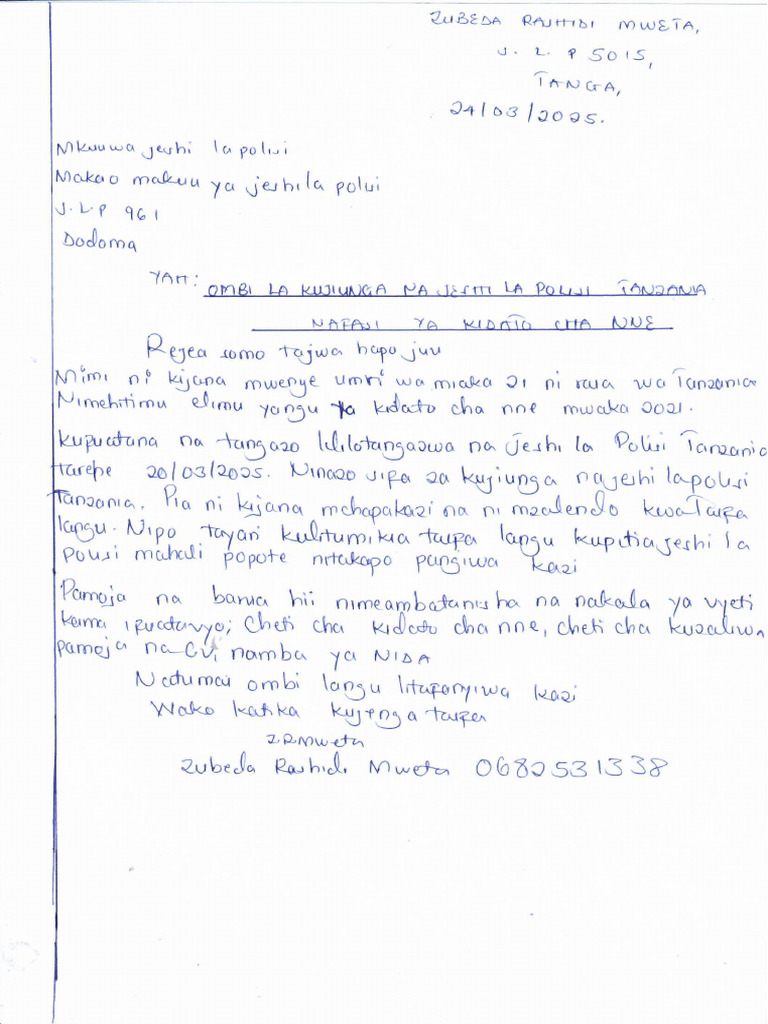 ZUBEDA RASHIDI MWETA,
S. L. P 5015,
TANGA,
24/03/2025.
Mkuuwa jeshi la polisi
Makao makuu ya jeshi la polisi
S.L.P 961
Dodoma
YAH: OMBI LA KUJIUNGA NA JESHI LA POLISI TANZANIA
NAFASI YA KIDATO CHA NNE
Rejea somo tajwa hapo juu
Mimi ni kijana mwenye umri wa miaka 21 ni raia wa Tanzania
Nimehitimu elimu yangu ya kidato cha nne mwaka 2021.
kufuatana na tangazo lililotangazwa na jeshi la Polisi Tanzania
tarehe 20/03/2025. Ninazo sifa za kujiunga na jeshi la polisi
Tanzania. Pia ni kijana mchapakazi na ni mzalendo kwa Taifa
langu. Nipo tayari kulitumikia taifa langu kupitia jeshi la
polisi mahali popote nitakapo pangiwa kazi
Pamoja na barua hii nimeambatanisha na nakala ya vyeti
kama ifuatavyo; Cheti cha kidato cha nne, cheti cha kuzaliwa
pamoja na CV, namba ya NIDA
Natumai ombi langu litafanyiwa kazi
Wako katika kujenga taifa
ZRMweta
Zubeda Rashidi Mweta 0682531338